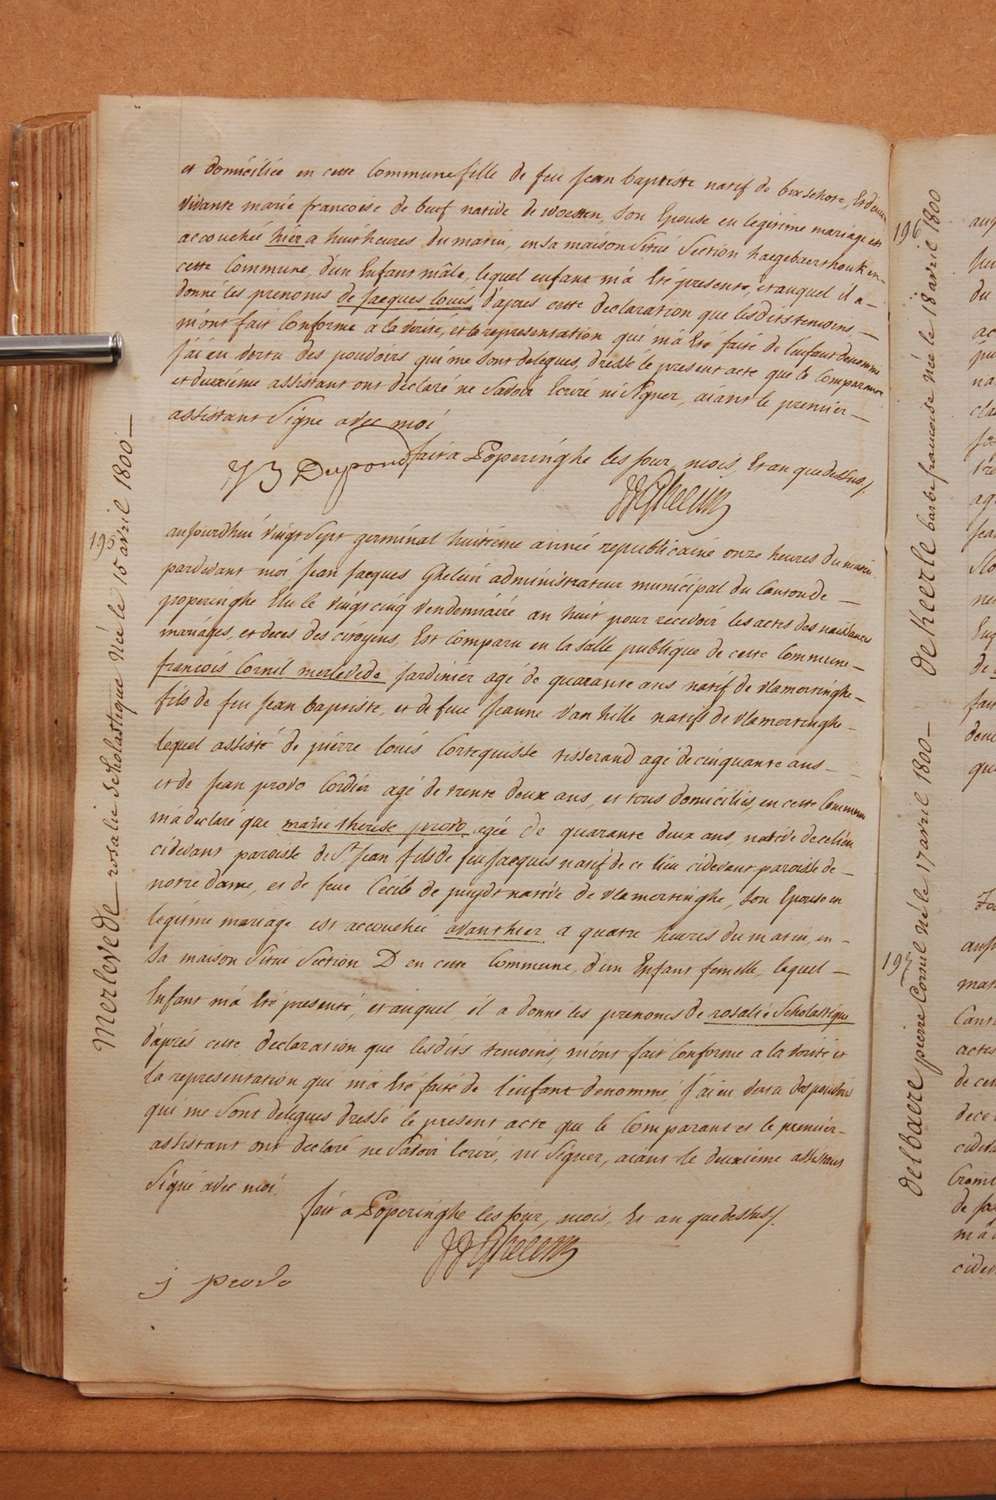 et domiciliée en cette Commune fille de feu Jean baptiste natif de bixschote, et de
vivante marie francoise de beuf native de woesten, son Epouse en legitime mariage est
accouchée hier a huit heures du matin, en sa maison Situé Section haegebaerthouk en
cette Commune, d'un Enfant mâle, lequel enfant m'a été presenté, et auquel il a —
donné les prenoms de Jacques louis, d'apres cette declaration que lesdits temoins —
m'ont fait Conforme a la verité, et la representation qui m'a été faite de l'enfant denommé
J'ai en vertu des pouvoirs qui me sont delegués, dressé le present acte que le Comparant
et deuxiéme assistant ont declaré ne savoir Ecrire ni Signer, aiant le premier —
assistant Signé avec moi
fait a Poperinghe les jour, mois, et an que dessus /.
J B Dupond
JJ Ghelein
195
Merlevede — rosalie Scholastique Née le 15 avril 1800 —
aujourd'hui vingt sept germinal huitiéme année republicaine onze heures du matin
pardevant moi Jean Jacques Ghelein administrateur municipal du Canton de —
poperinghe Elu le vingt cinq vendemiaire an huit pour recevoir les actes des naissances
mariages, et deces des citoyens, Est Comparu en la salle publique de cette Commune —
francois Cornil merlevede Jardinier agé de quarante ans natif de vlamertinghe —
fils de feu Jean baptiste, et de feue Jeanne Van hille natifs de vlamertinghe —
lequel assisté de pierre louis Cortequisse tisserand agé de cinquante ans —
et de Jean provo Cordier agé de trente deux ans, et tous domiciliés en cette Commune
m'a declaré que marie therese provo, agée de quarante deux ans, native de ce lieu
cidevant paroisse de St Jean fille de feu Jacques natif de ce lieu cidevant paroisse de —
notre dame, et de feue Cecile de puydt native de vlamertinghe, son Epouse en
legitime mariage est accouchée avanthier a quatre heures du matin, en —
sa maison Situé Section D en cette Commune, d'un Enfant femelle, lequel —
Enfant m'a été presenté, et auquel il a donné les prenoms de rosalie Scholastique
d'après cette declaration que lesdits temoins, m'ont fait Conforme a la verité et
la representation qui m'a été faite de l'enfant denommé, J'ai en vertu des pouvoirs
qui me sont delegués dressé le present acte que le Comparant et le premier —
assistant ont declaré ne savoir Ecrire, ni Signer, aiant le deuxiéme assistant
Signé avec moi.
fait a Poperinghe les jour, mois, et an que dessus /.
JJ Ghelein
j provo
196
de heerle barbe francoise née le 18 avril 1800
197
delbaere pierre Cornil né le 17 avril 1800 —